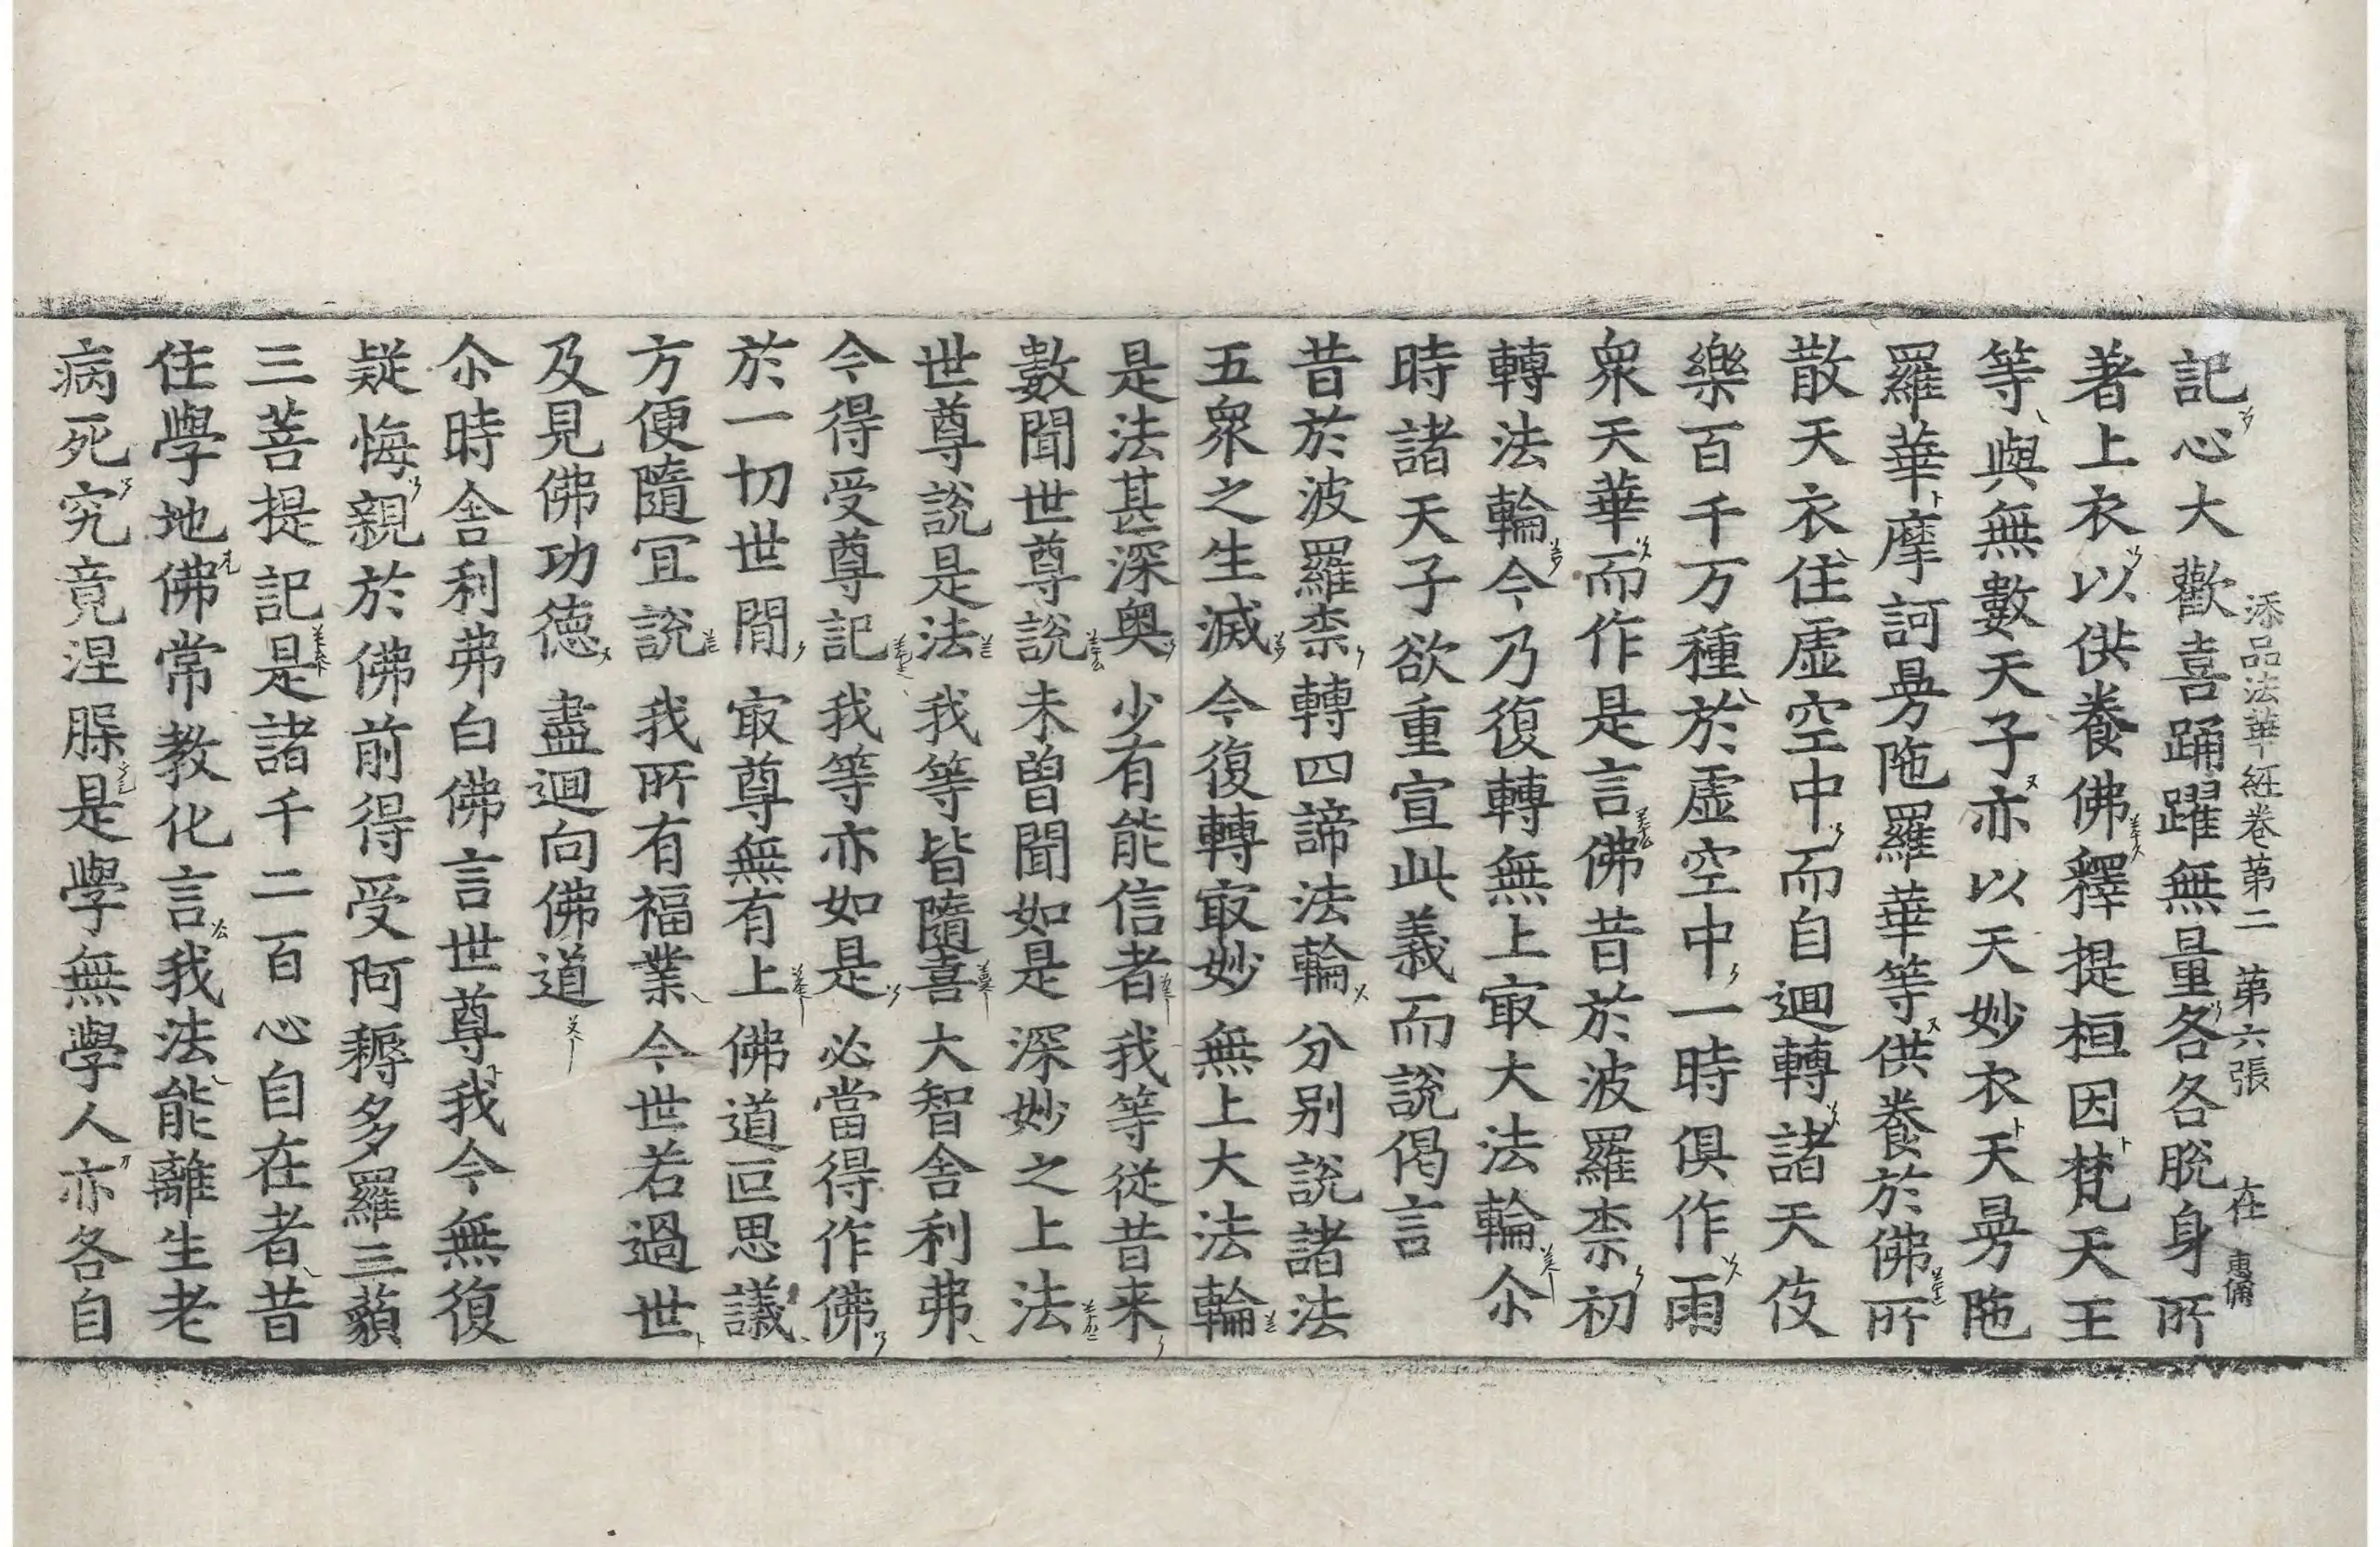 添品法華経卷第二 第六張 在 惠備
記心大歡喜踊躍無量各各脫身所
著上衣以供養佛釋提桓因梵天王
等與無數天子亦以天妙衣天曼陁
羅華摩訶曼陁羅華等供養於佛所
散天衣住虛空中而自迴轉諸天伎
樂百千万種於虛空中一時俱作雨
衆天華而作是言佛昔於波羅柰初
轉法輪今乃復轉無上㝡大法輪尒
時諸天子欲重宣此義而說偈言
昔於波羅柰 轉四諦法輪 分別說諸法
五衆之生滅 今復轉㝡妙 無上大法輪
是法甚深奥 少有能信者 我等從昔来
數聞世尊說 未曾聞如是 深妙之上法
世尊說是法 我等皆隨喜 大智舍利弗
今得受尊記 我等亦如是 必當得作佛
於一切世閒 㝡尊無有上 佛道叵思議
方便隨冝說 我所有福業 今世若過世
及見佛功德 盡迴向佛道
尒時舍利弗白佛言世尊我今無復
疑悔親於佛前得受阿耨多羅三藐
三菩提記是諸千二百心自在者昔
住學地佛常教化言我法能離生老
病死究竟涅槃是學無學人亦各自